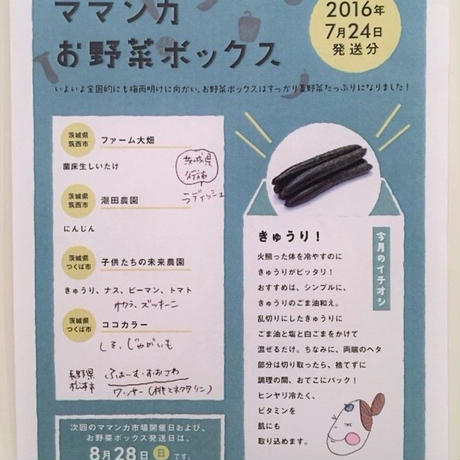 ママンカ
お野菜ボックス
2016年
7月24日
発送分
いよいよ全国的にも梅雨明けに向かい、お野菜ボックスはすっかり夏野菜たっぷりになりました！
茨城県
筑西市
ファーム大畑
菌床生しいたけ
茨城県
行方市
ラディッシュ
茨城県
筑西市
潮田農園
にんじん
茨城県
つくば市
子供たちの未来農園
きゅうり、ナス、ピーマン、トマト
オクラ、ズッキーニ
茨城県
つくば市
ココカラー
しそ、じゃがいも
長野県
松本市
ふぁーむ・おみつわ
ワッサー(桃とネクタリン)
次回のママンカ市場開催日および、
お野菜ボックス発送日は、
8月28日 日 です。
きゅうり！
今月のイチオシ
火照った体を冷やすのに
きゅうりがピッタリ！
おすすめは、シンプルに、
きゅうりのごま油和え。
乱切りにしたきゅうりに
ごま油と塩と白ごまをかけて
混ぜるだけ。ちなみに、両端のヘタ
部分は切り取ったら、捨てずに
調理の間、おでこにパック！
ヒンヤリ冷たく、
ビタミンを
肌にも
取り込めます。